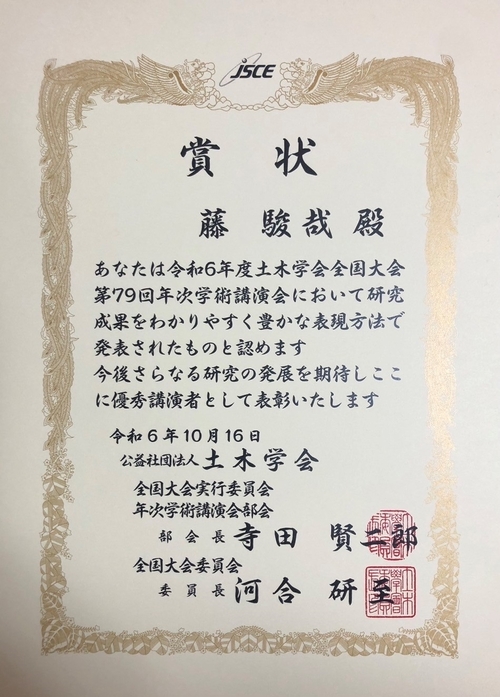 JSCE
賞 状
藤 駿哉 殿
あなたは令和6年度土木学会全国大会
第79回年次学術講演会において研究
成果をわかりやすく豊かな表現方法で
発表されたものと認めます
今後さらなる研究の発展を期待しここ
に優秀講演者として表彰いたします
令和6年10月16日
公益社団法人 土木学会
全国大会実行委員会
年次学術講演会部会
部会長 寺田 賢二郎
全国大会委員会
委員長 河合 研至